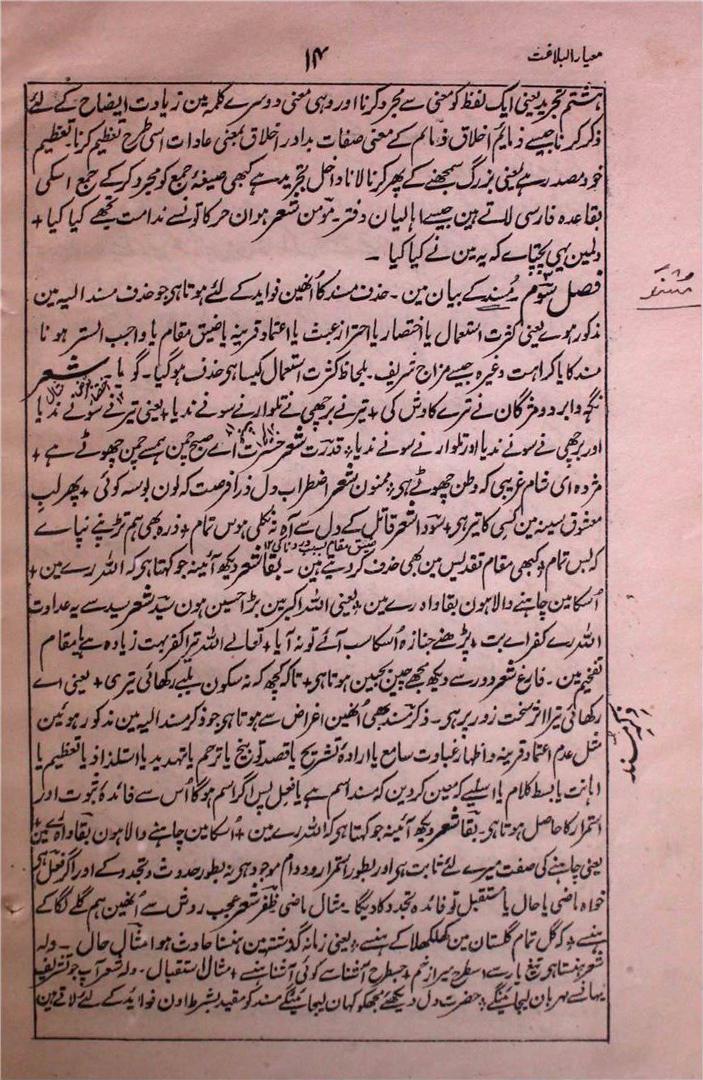 معیار البلاغت
۱۴
ہشتم تجرید یعنی ایک لفظ کو معنی سے مجرد کرنا اور وہی معنی دوسرے کلمہ مین زیادت ایضاح کے لئے
ذکر کرنا جیسے ذمایم اخلاق ذمائم کے معنی صفات بد اور اخلاق بمعنی عادات اسی طرح تعظیم کرنا۔ تعظیم
خود مصدر ہے یعنی بزرگ سمجھنے کے پھر کرنا لانا داخل تجرید ہے کبھی صیغۂ جمع کو مجرد کر کے جمع اسکی
بقاعدہ فارسی لاتے ہین جیسے اہالیان دفتر۔ مؤمن شعر ہو ان حرکاتو نسے ندامت تجھے کیا کیا +
دلمین یہی پچتاے کہ یہ مین نے کیا کیا ۔
فصل سوم مسند کے بیان مین ۔ حذف مسند کا اُنھین فواید کے لئے ہوتا ہی جو حذف مسند الیہ مین
مذکور ہوے یعنی کثرت استعمال یا اختصار یا احتراز عبث یا اعتماد قرینہ یا ضیق مقام یا واجب الستر ہونا
مسند کا یا کراہت وغیرہ جیسے مزاج شریف ۔ بلحاظ کثرت استعمال کیسا ہی حذف ہو گیا ۔ گویا شعر
نگہ و ابرو و مژگان نے ترے کاوش کی + تیر نے برچھی نے تلوار نے سونے ندیا + یعنی تیر نے سونے ندیا
اور برچھی نے سونے ندیا اور تلوار نے سونے ندیا ؛ قدرت شعر حسرت اے صبح چمن ہمسے چمن چھوٹے ہے +
مژدہ ای شام غریبی کہ وطن چھوٹے ہی ؛ ممنون شعر اضطراب دل ذرا فرصت کہ لون بوسہ کوئی + پھر لب
معشوق سینہ مین کسی کا تیر ہی + سودا شعر قاتل کے دل سے آہ نہ نکلی ہوس تمام + ذرہ بھی ہم تڑپنے نپاے
کہ بس تمام + کبھی مقام تقدیس مین بھی حذف کر دیتے ہین ۔ بقا شعر دیکھ آئینہ جو کہتا ہی کہ اللہ رے مین +
اُسکا مین چاہنے والا ہون بقا واہ رے مین + یعنی اللہ اکبر مین بڑا حسین ہون سید شعر سید سے یہ عداوت
اللہ رے کفر اے بت + پڑھنے جنازہ اُسکا سب آئے تو نہ آیا + تعالے اللہ تیرا کفر بہت زیادہ ہے یا مقام
تفخیم مین ۔ فارغ شعر دور سے دیکھ مجھے چین بجبین ہوتا ہی + تا کچھ کہ نہ سکون ہلبے رکھائی تیری + یعنی اے
رکھائی تیرا اثر سخت زور پر ہی ۔ ذکر مسند بھی اُنھین اغراض سے ہوتا ہی جو ذکر مسند الیہ مین مذکور ہوئین
مثل عدم اعتماد قرینہ و اظہار غباوت سامع یا ارادۂ تشریح یا قصد توبیخ یا ترحم یا تہدید یا استلذاذ یا تعظیم یا
اہانت یا بسط کلام یا اسلیے کہ معین کر دین کہ مسند اسم ہے یا فعل پس اگر اسم ہوگا اُس سے فائدہ ثبوت اور
استمرار کا حاصل ہوتا ہی ۔ بقا شعر دیکھ آئینہ جو کہتا ہی کہ اللہ رے مین + اُسکا مین چاہنے والا ہون بقا واہ رے مین
یعنی چاہنے کی صفت میرے لئے ثابت ہی اور بطور استمرار و دوام موجود ہی نہ بطور حدوث و تجدد کے اور اگر فعل ہی
خواہ ماضی یا حال یا مستقبل تو فائدہ تجدد کا دیگا ۔ مثال ماضی ظفر شعر عجب روش سے اُنھین ہم گلے لگا کے
ہنسے + کہ گل تمام گلستان مین کھلکھلا کے ہنسے ؛ یعنی زمانہ گذشتہ مین ہنسنا حادث ہوا مثال حال ۔ ولہ
شعر ہنستا ہو تیغ یار سے اسطرح میرا زخم + جسطرح آشنا سے کوئی آشنا ہنسے + مثال استقبال ۔ ولہ شعر آپ جو تشریف
یہانسے مہربان لیجائینگے ؛ حضرت دل دیکھئے مجھکو کہان لیجائینگے مسند کو مقید بشرط اون فوائد کے لئے لاتے ہین
مسند
ذکر مسند